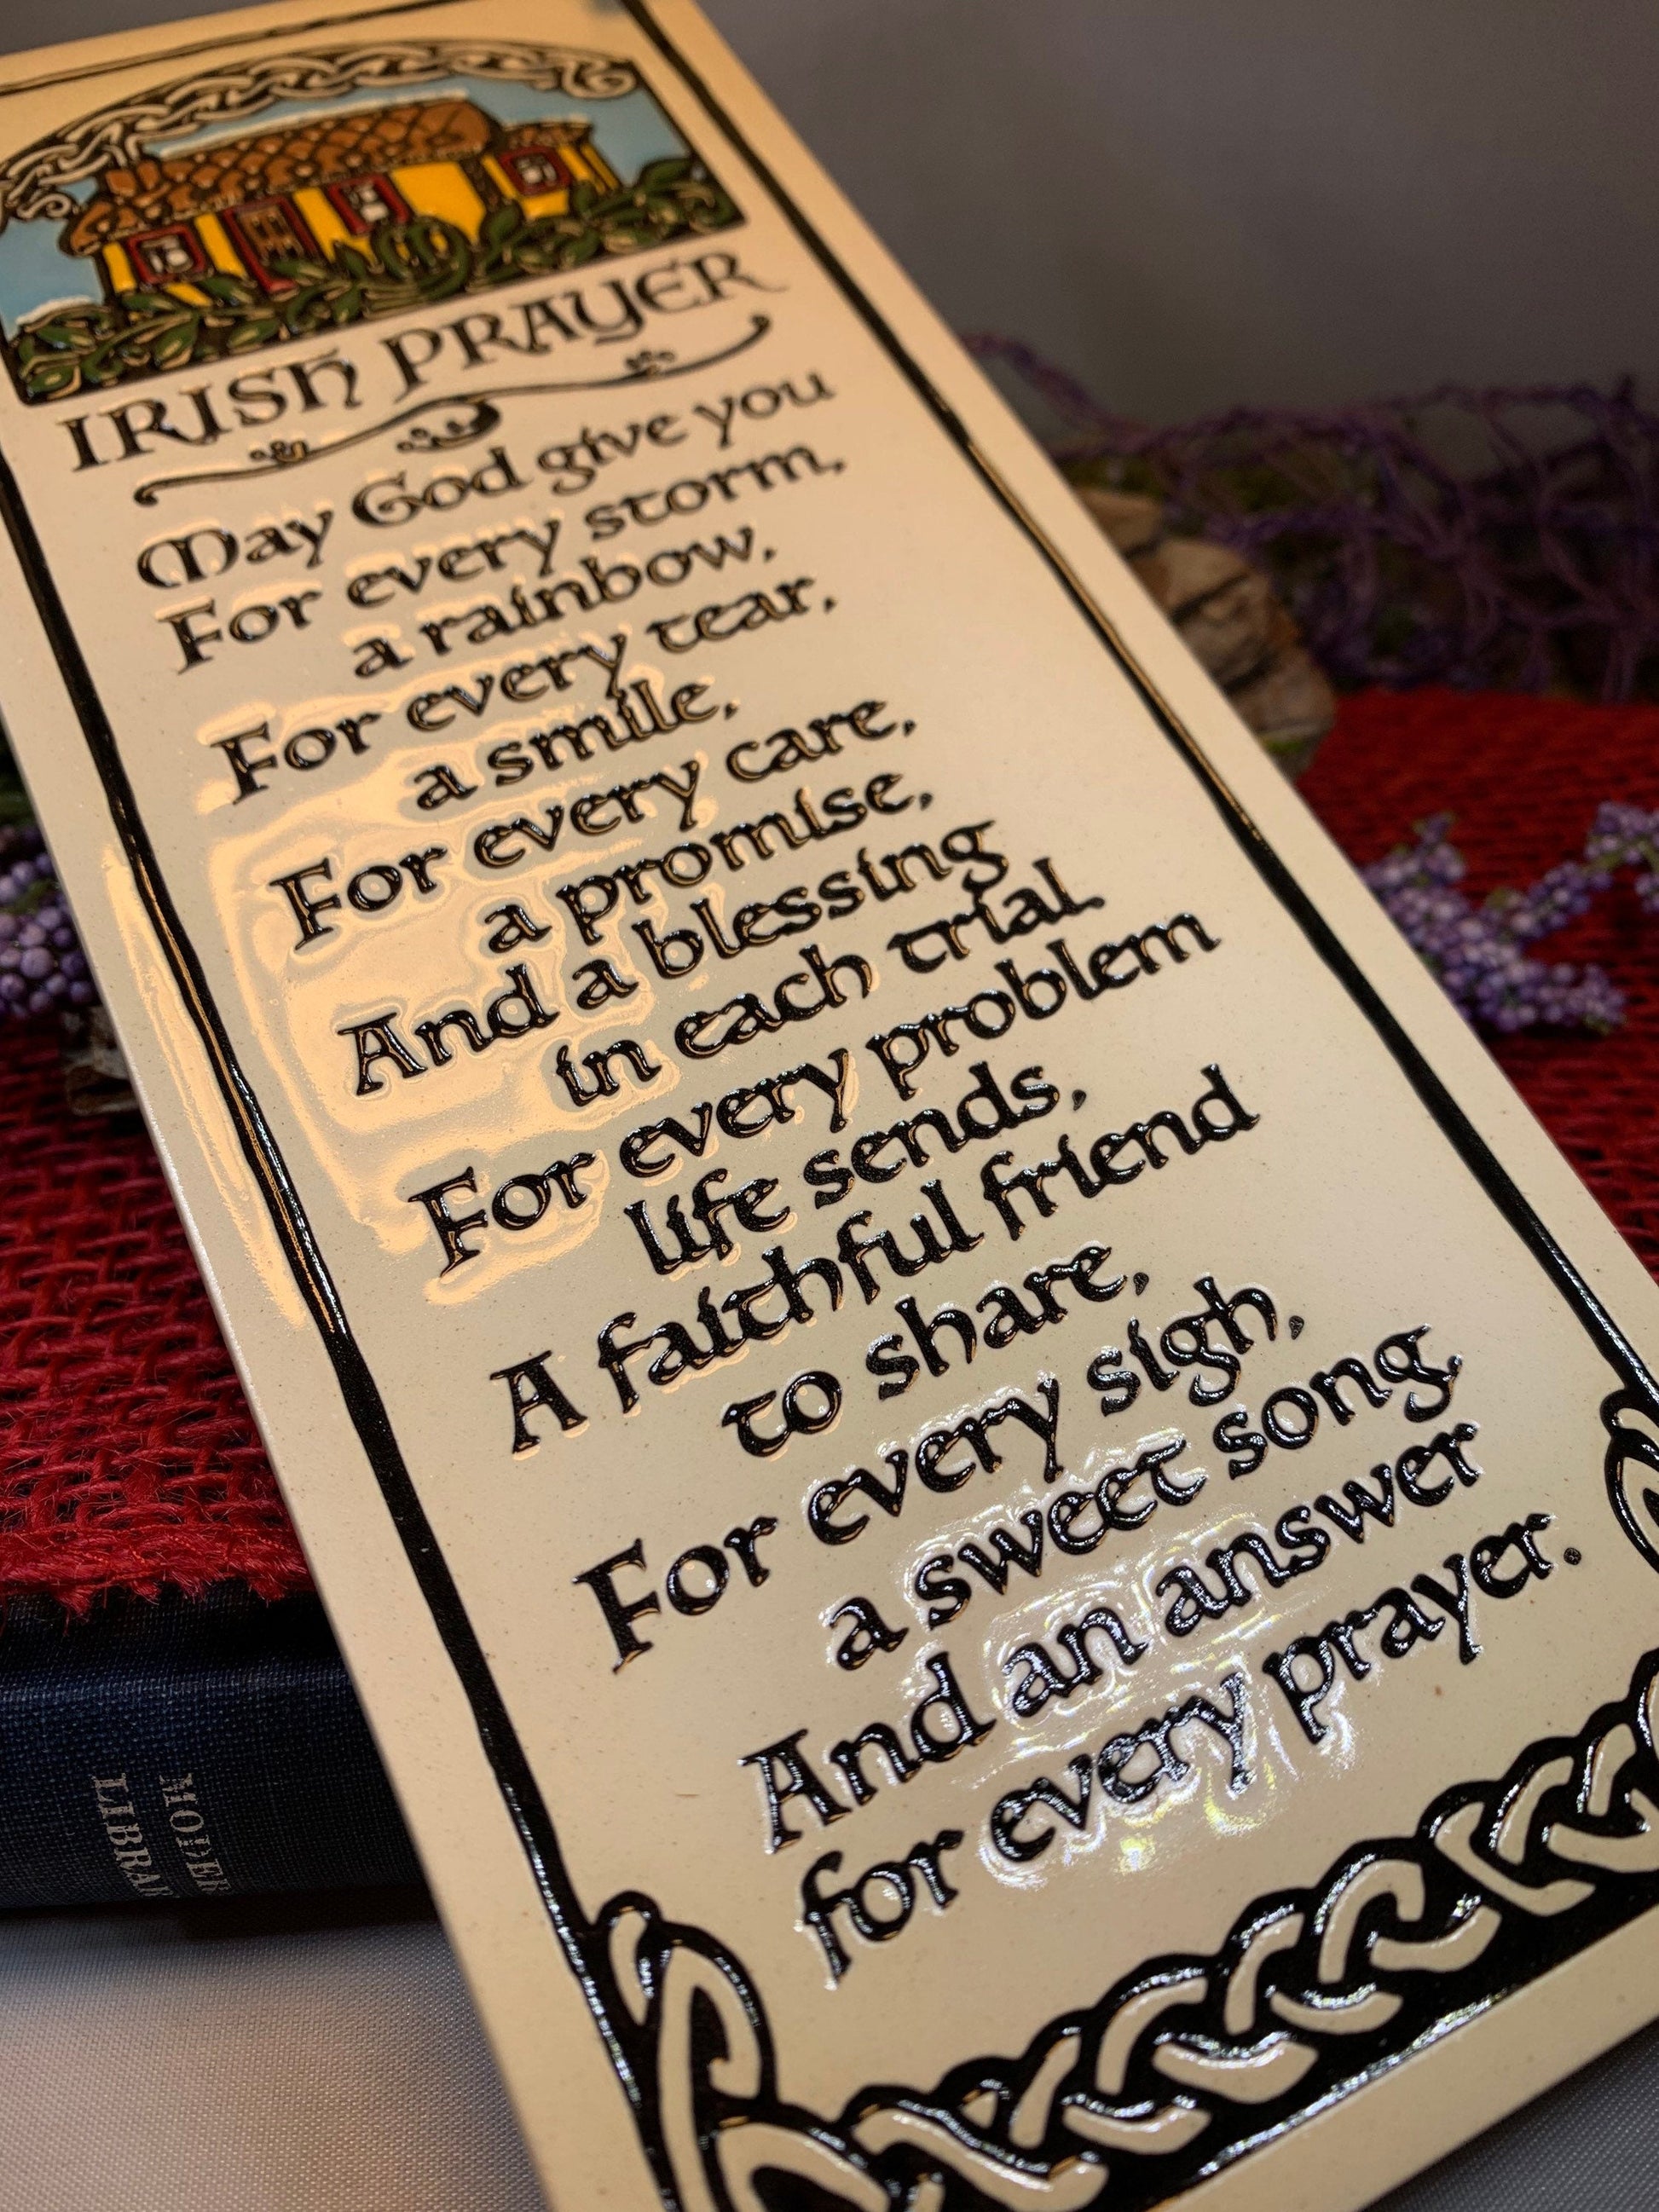 IRISH PRAYER
May God give you
For every storm,
a rainbow,
For every tear,
a smile,
For every care,
a promise,
And a blessing
in each trial.
For every problem
life sends,
A faithful friend
to share,
For every sigh,
a sweet song
And an answer
for every prayer.
MODERN
LIBRARY